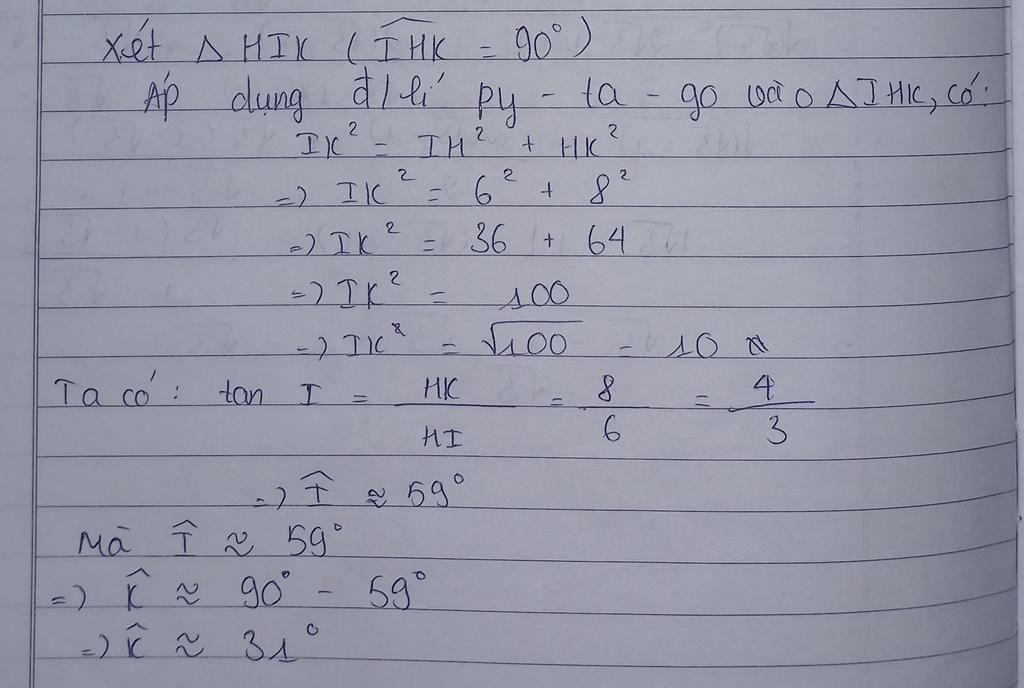 Xét △ HIK ( \widehat{IHK} = 90° )
Áp dụng đ/lí py - ta - go vào △ IHK, có:
IK² = IH² + HK²
=) IK² = 6² + 8²
=) IK² = 36 + 64
=) IK² = 100
=) IK = √100 = 10
Ta có: tan I = HK/HI = 8/6 = 4/3
=) Î ≈ 59°
Mà Î ≈ 59°
=) K̂ ≈ 90° - 59°
=) K̂ ≈ 31°